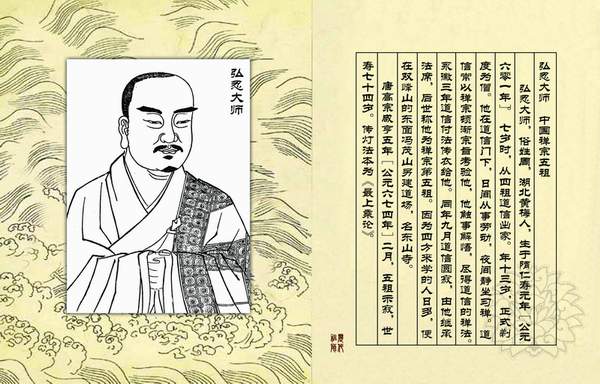 弘忍大师
弘忍大师　中国禅宗五祖
弘忍大师，俗姓周，湖北黄梅人，生于隋仁寿元年［公元
六零一年］七岁时，从四祖道信出家。年十三岁，正式剃
度为僧。他在道信门下，日间从事劳动，夜间静坐习禅。道
信常以禅宗顿渐宗旨考验他，他触事解悟，尽得道信的禅法。
永徽三年道信付法传衣给他。同年九月道信圆寂，由他继承
法席，后世称他为禅宗第五祖。因为四方来学的人日多，便
在双峰山的东面冯茂山另建道场，名东山寺。
唐高宗咸亨五年［公元六七四年］二月，五祖示寂，世
寿七十四岁。传灯法本为《最上乘论》。